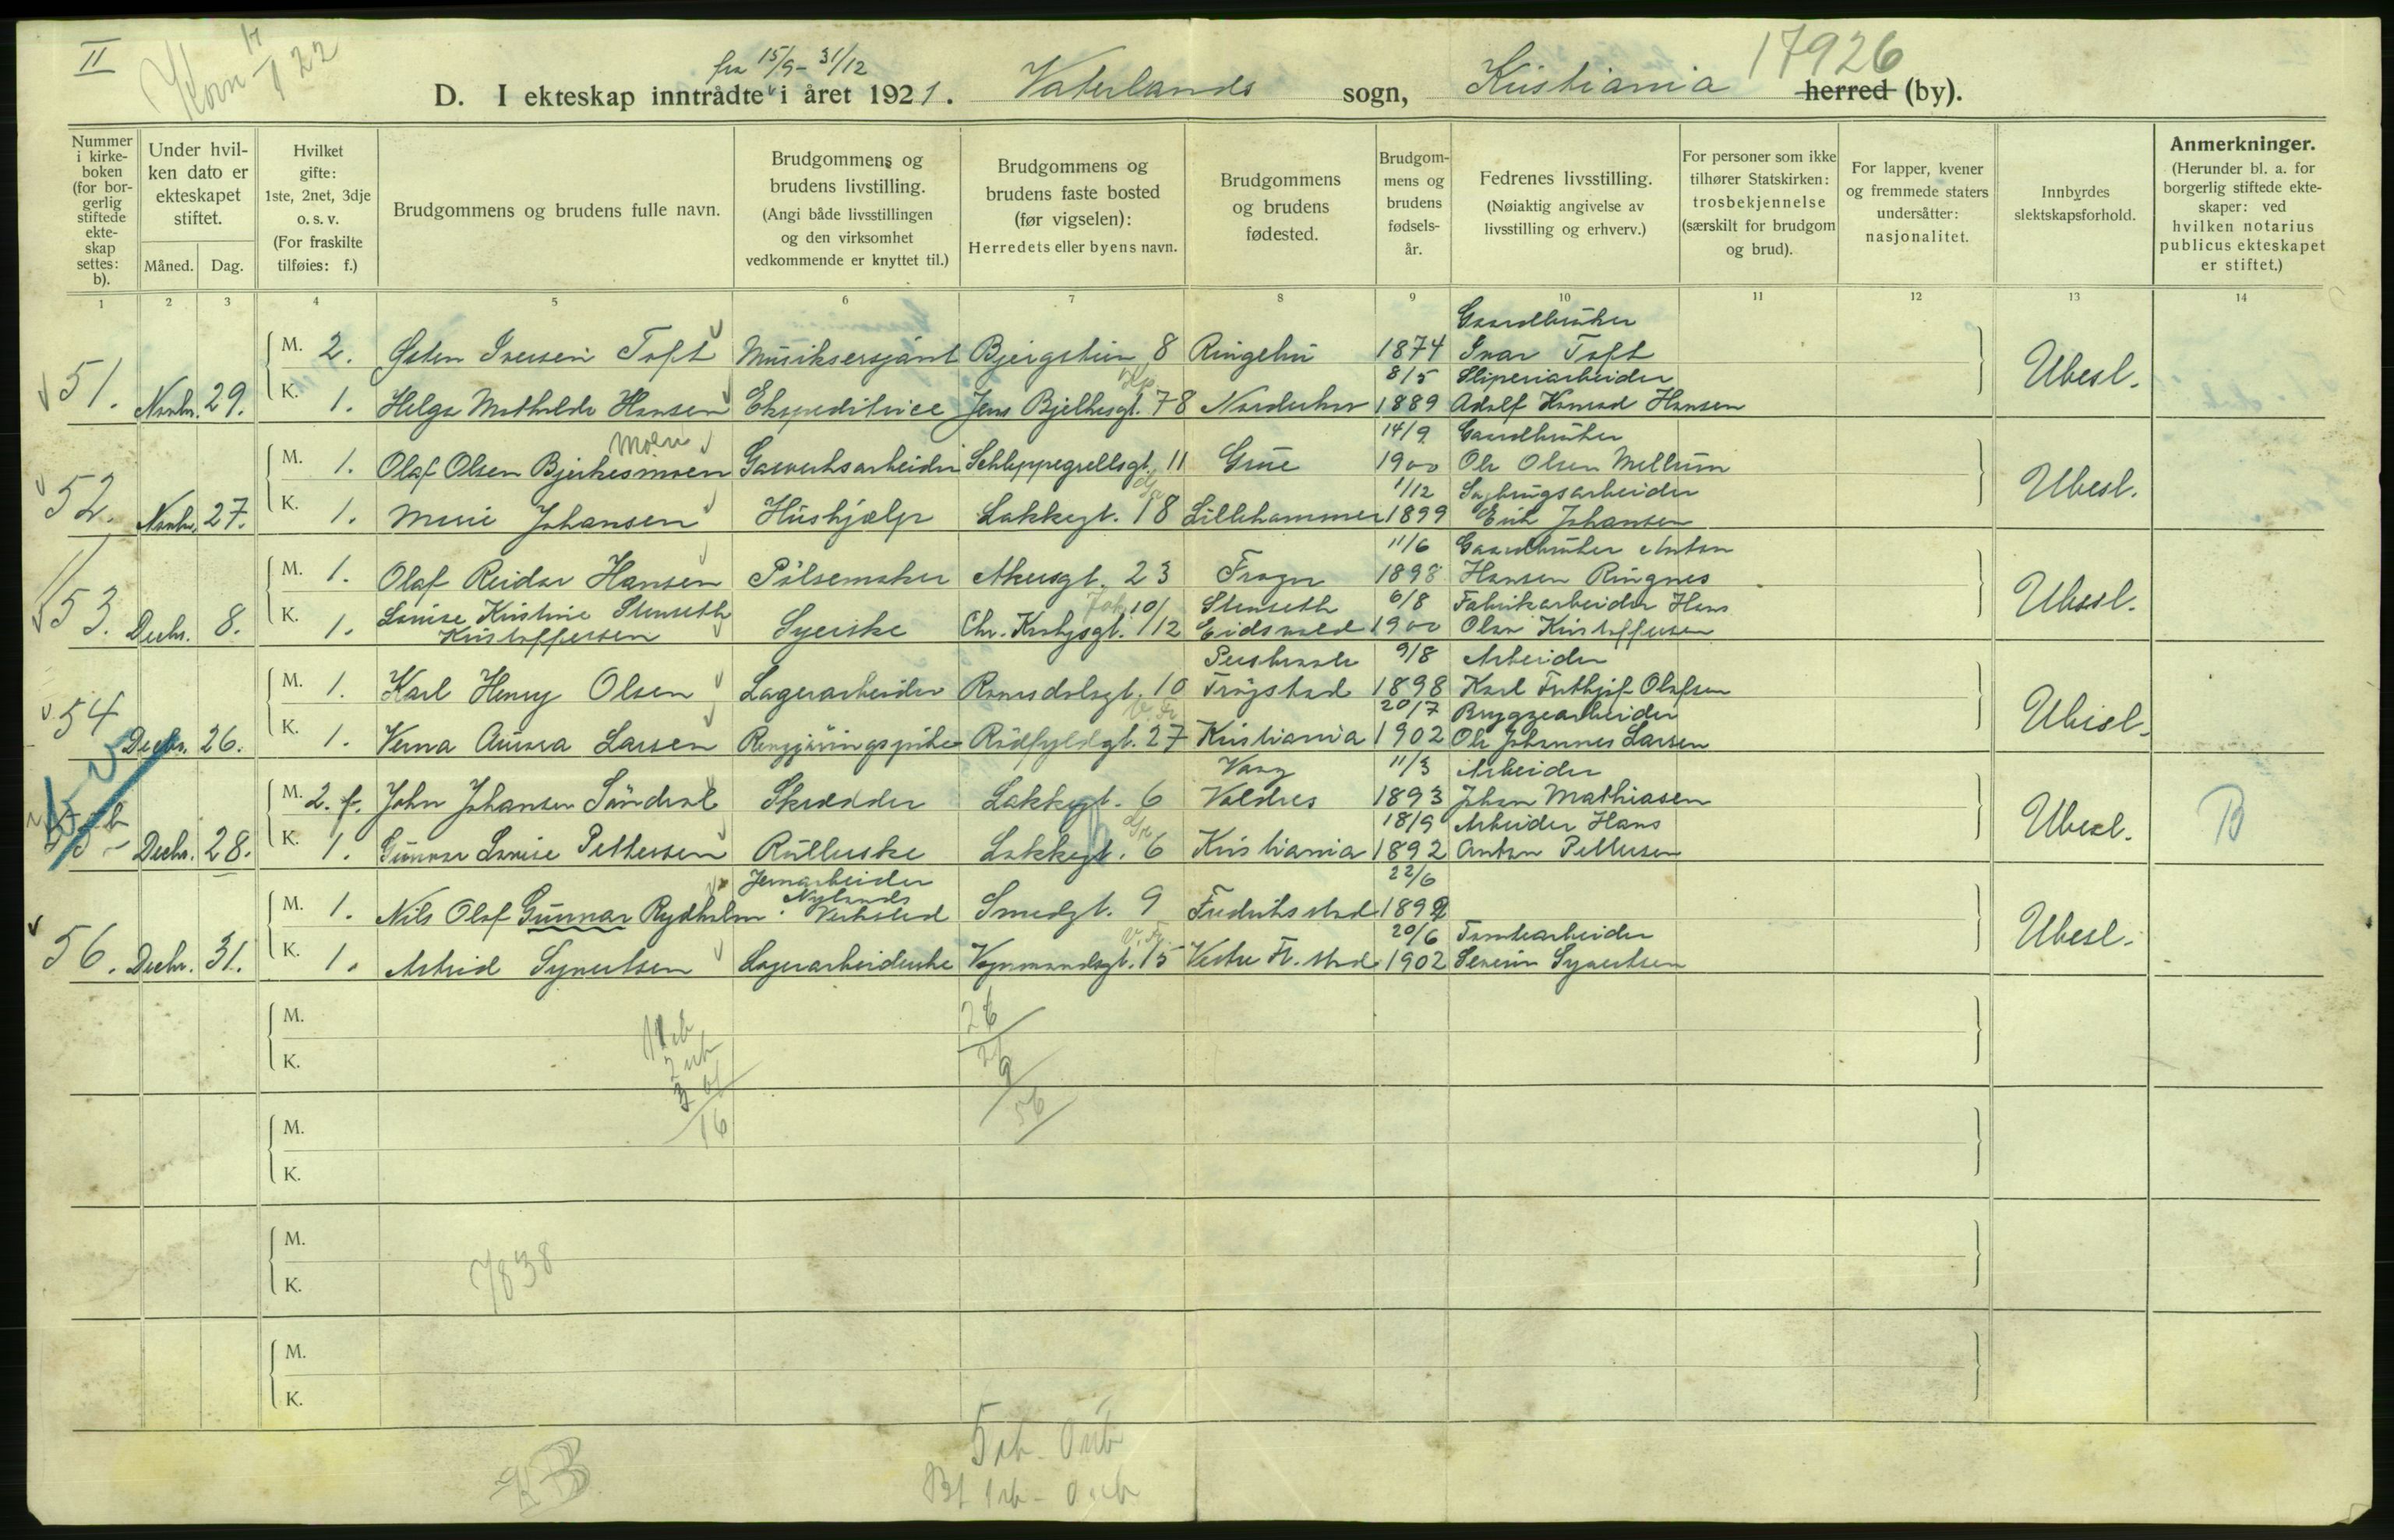 II
17926
fra 15/9 - 31/12
D. I ekteskap inntrådte i året 1921. Vaterlands sogn, Kristiania herred (by).
Nummer i kirke-boken (for bor-gerlig stiftede ekte-skap settes: b).
Under hvil-ken dato er ekteskapet stiftet.
Måned. Dag.
Hvilket gifte: 1ste, 2net, 3dje o. s. v. (For fraskilte tilføies: f.)
Brudgommens og brudens fulle navn.
Brudgommens og brudens livstilling. (Angi både livsstillingen og den virksomhet vedkommende er knyttet til.)
Brudgommens og brudens faste bosted (før vigselen): Herredets eller byens navn.
Brudgommens og brudens fødested.
Brudgom-mens og brudens fødsels-år.
Fedrenes livsstilling. (Nøiaktig angivelse av livsstilling og erhverv.)
For personer som ikke tilhører Statskirken: trosbekjennelse (særskilt for brudgom og brud).
For lapper, kvener og fremmede staters undersåtter: nasjonalitet.
Innbyrdes slektskapsforhold.
Anmerkninger. (Herunder bl. a. for borgerlig stiftede ekte-skaper: ved hvilken notarius publicus ekteskapet er stiftet.)
1 2 3 4 5 6 7 8 9 10 11 12 13 14
Gaardbruker
M. 2. Østen Iversen Toft Musiksersjant Bjergstien 8 Ringebu 1874 Ivar Toft
8/5 Sliperiarbeider
51. Novbr. 29. K. 1. Helga Mathilde Hansen Ekspeditrice Jens Bjelkesgt. 78 Norderhov 1889 Adolf Konrad Hansen Ubesl.
Moen 14/9 Gaardbruker
M. 1. Olaf Olsen Bjerkesmoen Gasverksarbeider Schleppegrellsgt. 11 Grue 1900 Ole Olsen Mellum
1/12 Sagbrugsarbeider
52. Novbr. 27. K. 1. Marie Johansen Hushjælp Lakkegt. 18 Lillehammer 1899 Erik Johansen Ubesl.
11/6 Gaardbruker Anton
M. 1. Olaf Reidar Hansen Pølsemaker Akersgt. 23 Frogn 1898 Hansen Ringnes
Louise Kristine Stenseth 10/ Stenseth 6/8 Fabrikarbeider Hans
53. Decbr. 8. K. 1. Kristoffersen Syerske Chr. Krohgsgt. /12 Eidsvold 1900 Olav Kristoffersen Ubesl.
9/8 Arbeider
M. 1. Karl Henry Olsen Lagerarbeider Romsdalsgt. 10 Trøgstad 1898 Karl Frithjof Olafsen
20/7 Bryggearbeider
54 Decbr. 26. K. 1. Verna Aurora Larsen Rengjøringspike Rødfyldgt. 27 Kristiania 1902 Ole Johannes Larsen Ubesl.
Vang 11/3 Arbeider
M. 2. f. John Johansen Søndrol Skrædder Lakkegt. 6 Valdres 1893 Johan Mathiasen
18/9 Arbeider Hans
Decbr. 28. K. 1. Gunvor Lovise Pettersen Rullerske Lakkegt. 6 Kristiania 1892 Anton Pettersen Ubesl. B
Jernarbeider 22/6
Nylands
M. 1. Nils Olof Gunnar Rydholm Verksted Smedgt. 9 Fredriksstad 1892
20/6 Tomtearbeider
56. Decbr. 31. K. 1. Astrid Syvertsen Lagerarbeiderske Vognmandsgt. 15 Vestre Fr. stad 1902 Severin Syvertsen Ubesl.
M.
K.
26
56
16
M.
K.
M.
K.
7838
M.
K.